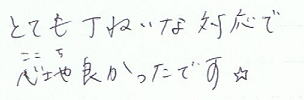 とても丁ねいな対応で
心地や良かったです☆